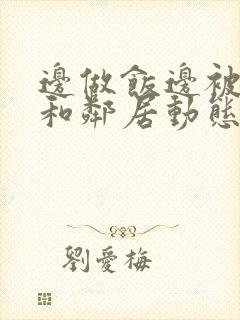 邊做飯邊被
和鄰居動態
劉愛梅